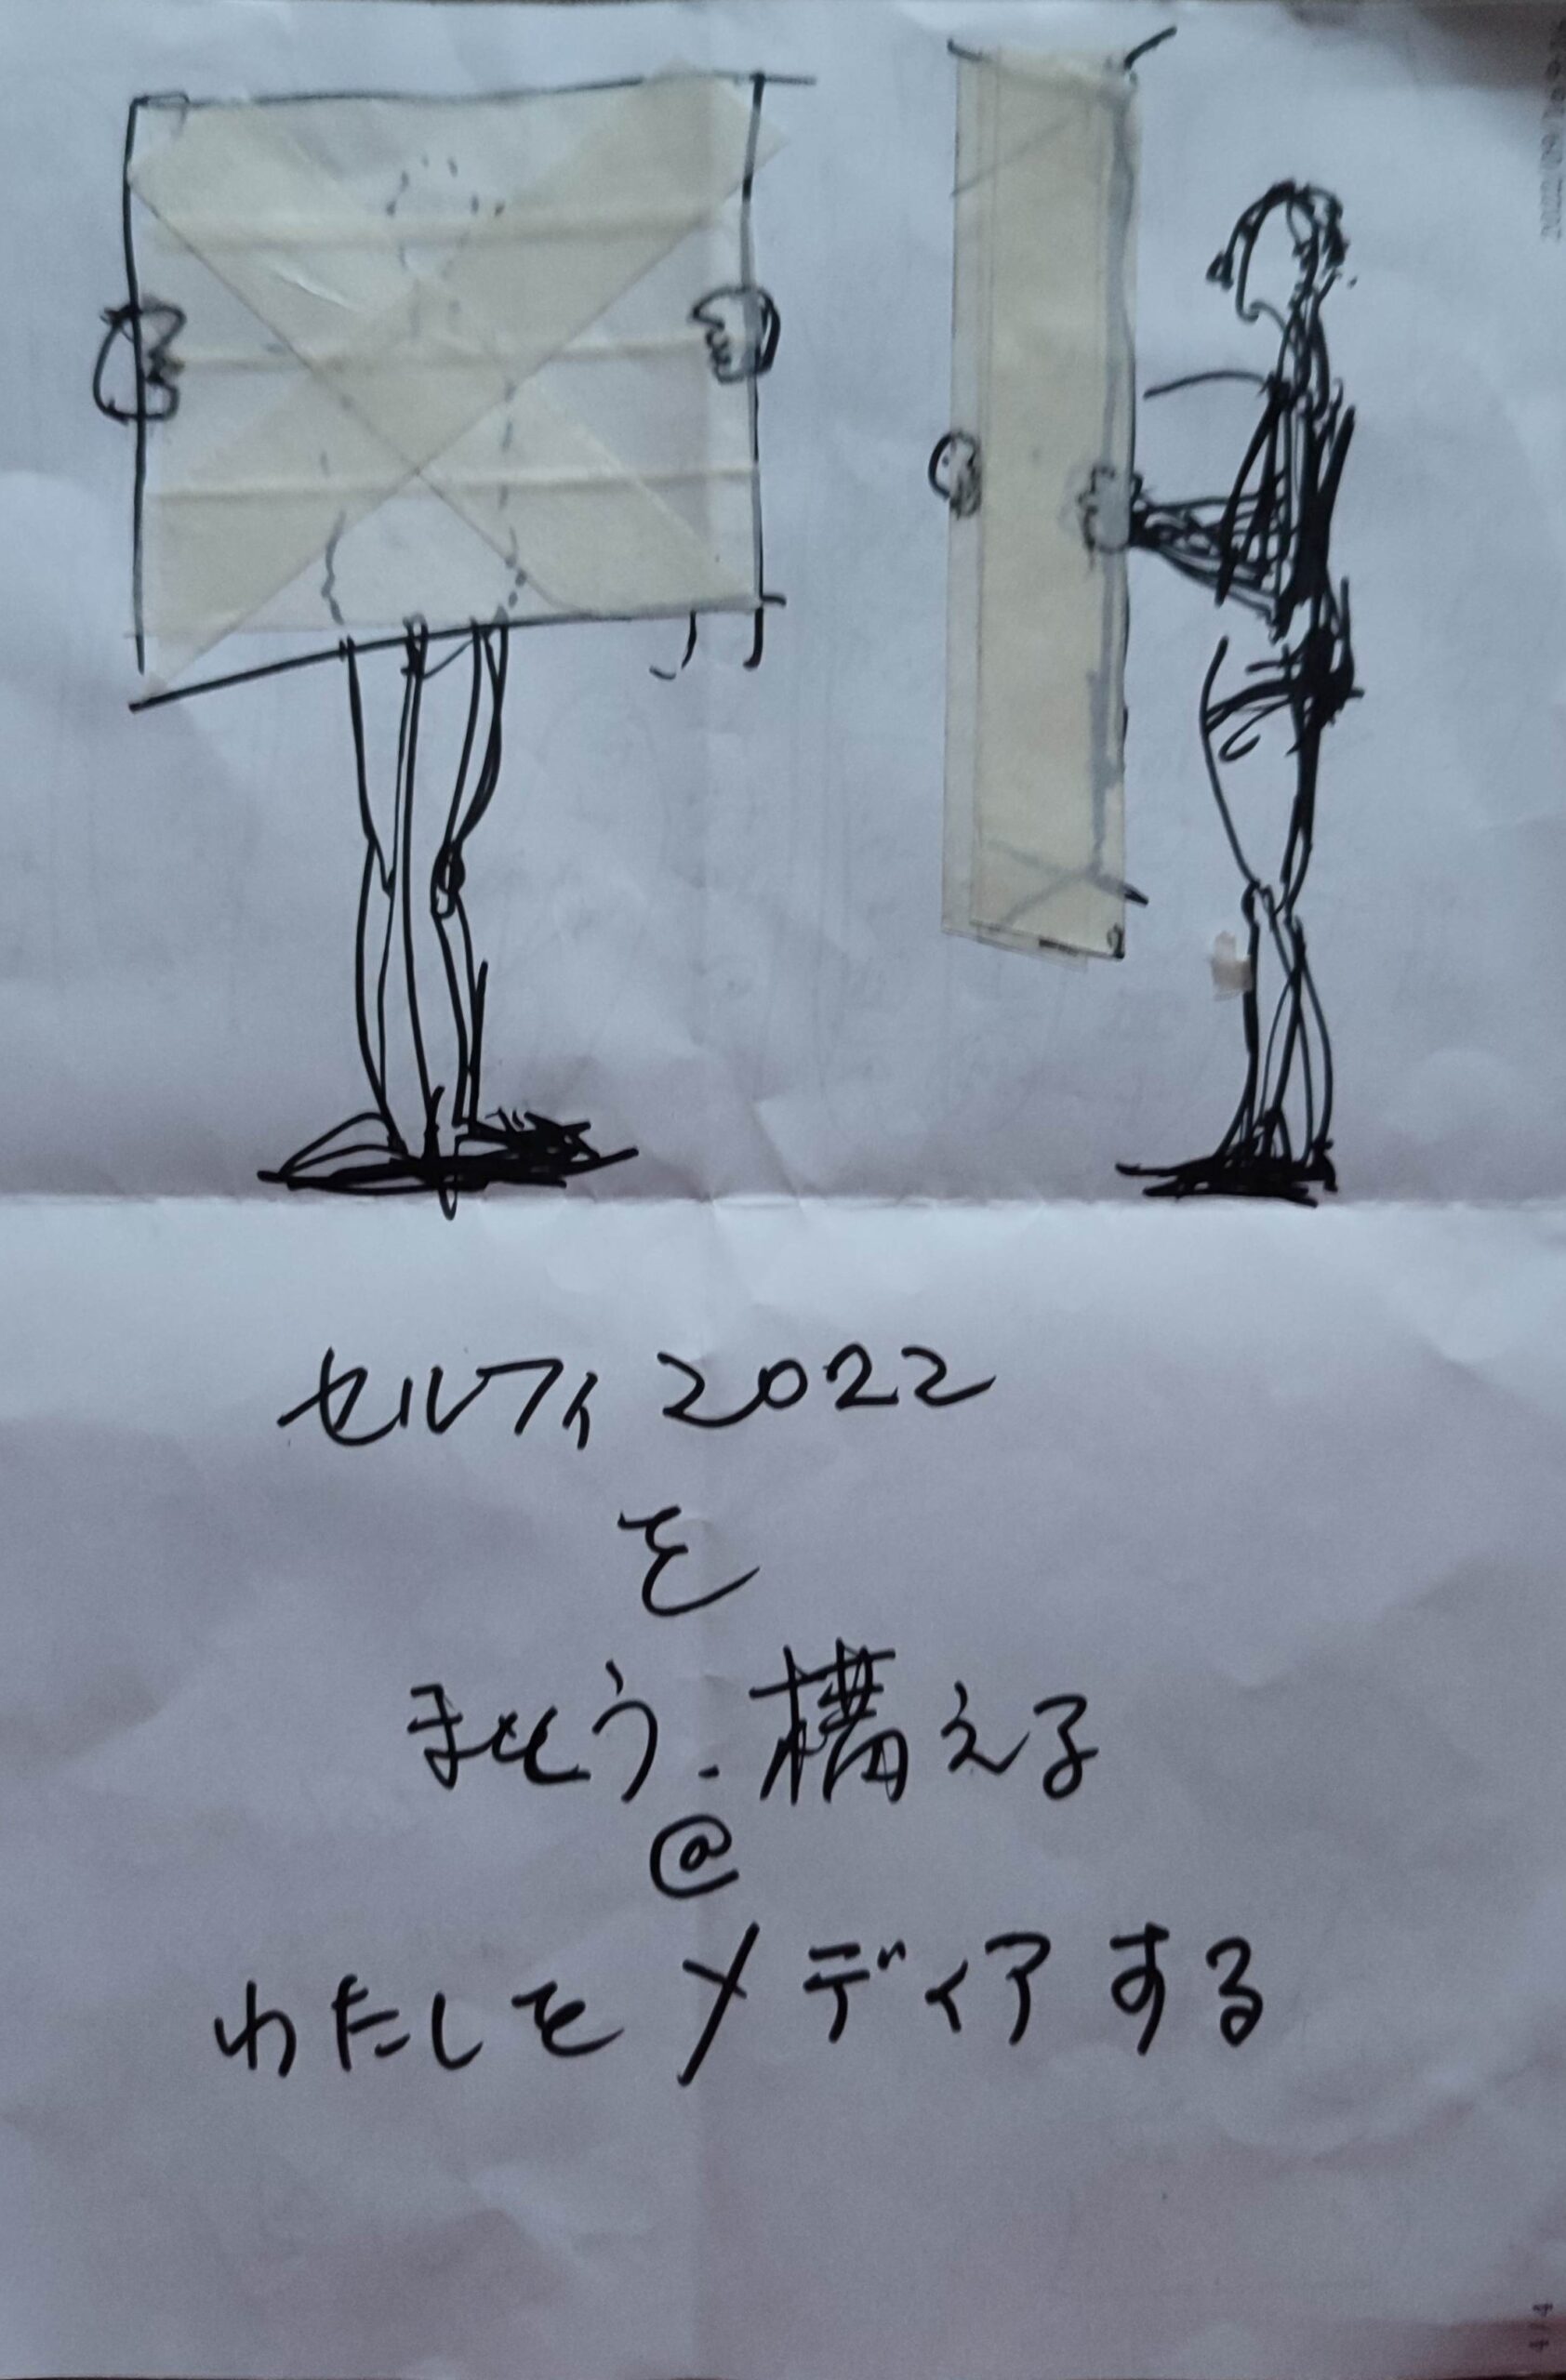 セルフィ2022
を
まとう.構える
@
わたしをメディアする
4/4